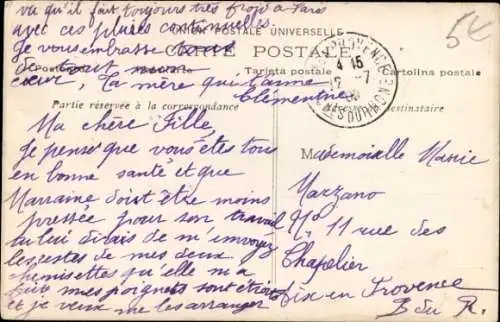 vu qu'il fait toujours très froid à Paris
avec ces pluies continuelles.
UNION POSTALE UNIVERSELLE
5€
Je vous embrasse tous
CARTE POSTALE
de tout mon
Tarjeta postale
Cartolina postale
cœur, Ta mère qui t'aime
Clémentine
4 15
Partie réservée à la correspondance
Ma chère Fille,
Je pense que vous êtes tous
en bonne santé et que
Marraine doit être moins
pressée pour son travail
tu lui diras de m'envoyer
les restes de mes deux
chemisettes qu'elle m'a
fait mes poignets sont étroits
et je veux me les arranger
Mademoiselle Marie
Marzano
No 11 rue des
Chapelier
Aix en Provence
B du R.